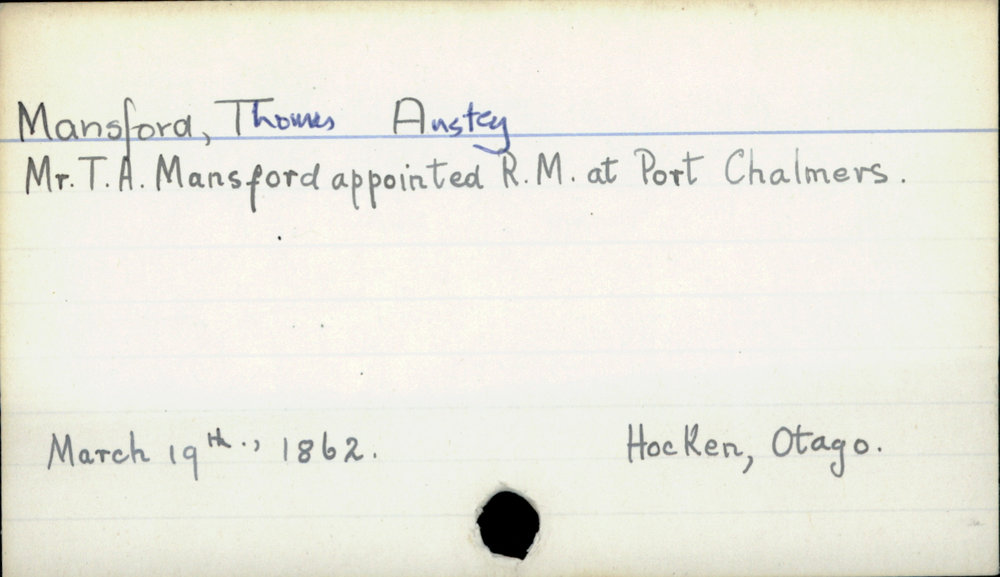 Mansford, Thomas Anstey
Mr. T. A. Mansford appointed R. M. at Port Chalmers.
March 19th., 1862.
Hocken, Otago.